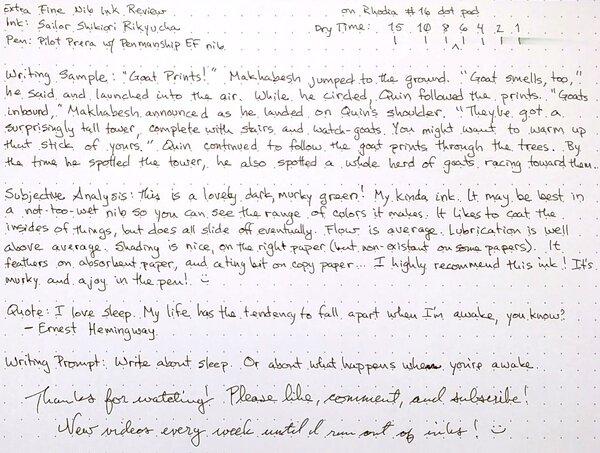 Extra Fine Nib Ink Review on Rhodia #16 dot pad
Ink: Sailor Shikiori Rikyucha Dry Time: 15 10 8 6 4 2 1
Pen: Pilot Prera w/ Penmanship EF nib
Writing Sample: "Goat Prints!" Makhabesh jumped to the ground. "Goat smells, too,"
he said and launched into the air. While he circled, Quin followed the prints. "Goats
inbound," Makhabesh announced as he landed on Quin's shoulder. "They've got a
surprisingly tall tower, complete with stairs and watch-goats. You might want to warm up
that stick of yours." Quin continued to follow the goat prints through the trees. By
the time he spotted the tower, he also spotted a whole herd of goats racing toward them...
Subjective Analysis: This is a lovely dark, murky green! My kinda ink. It may be best in
a not-too-wet nib so you can see the range of colors it makes. It likes to coat the
insides of things, but does all slide off eventually. Flow is average. Lubrication is well
above average. Shading is nice, on the right paper (but non-existant on some papers). It
feathers on absorbent paper, and a tiny bit on copy paper... I highly recommend this ink! It's
murky and a joy in the pen! :)
Quote: I love sleep. My life has the tendency to fall apart when I'm awake, you know?
- Ernest Hemingway
Writing Prompt: Write about sleep. Or about what happens when you're awake.
Thanks for watching! Please like, comment, and subscribe!
New videos every week until I run out of inks! :)